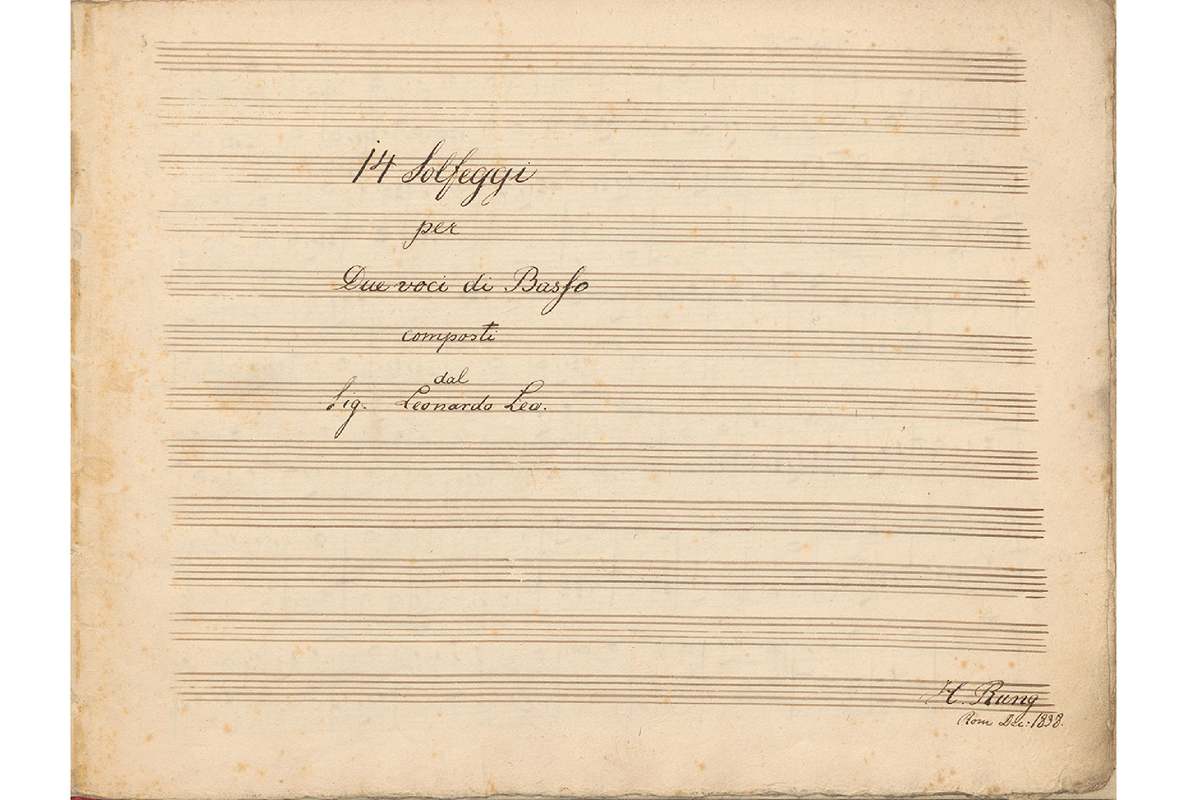 14 Solfeggi
per
Due voci di Basso
composti
dal
Sig. Leonardo Leo.
H. Rung
Rom Dec. 1838.